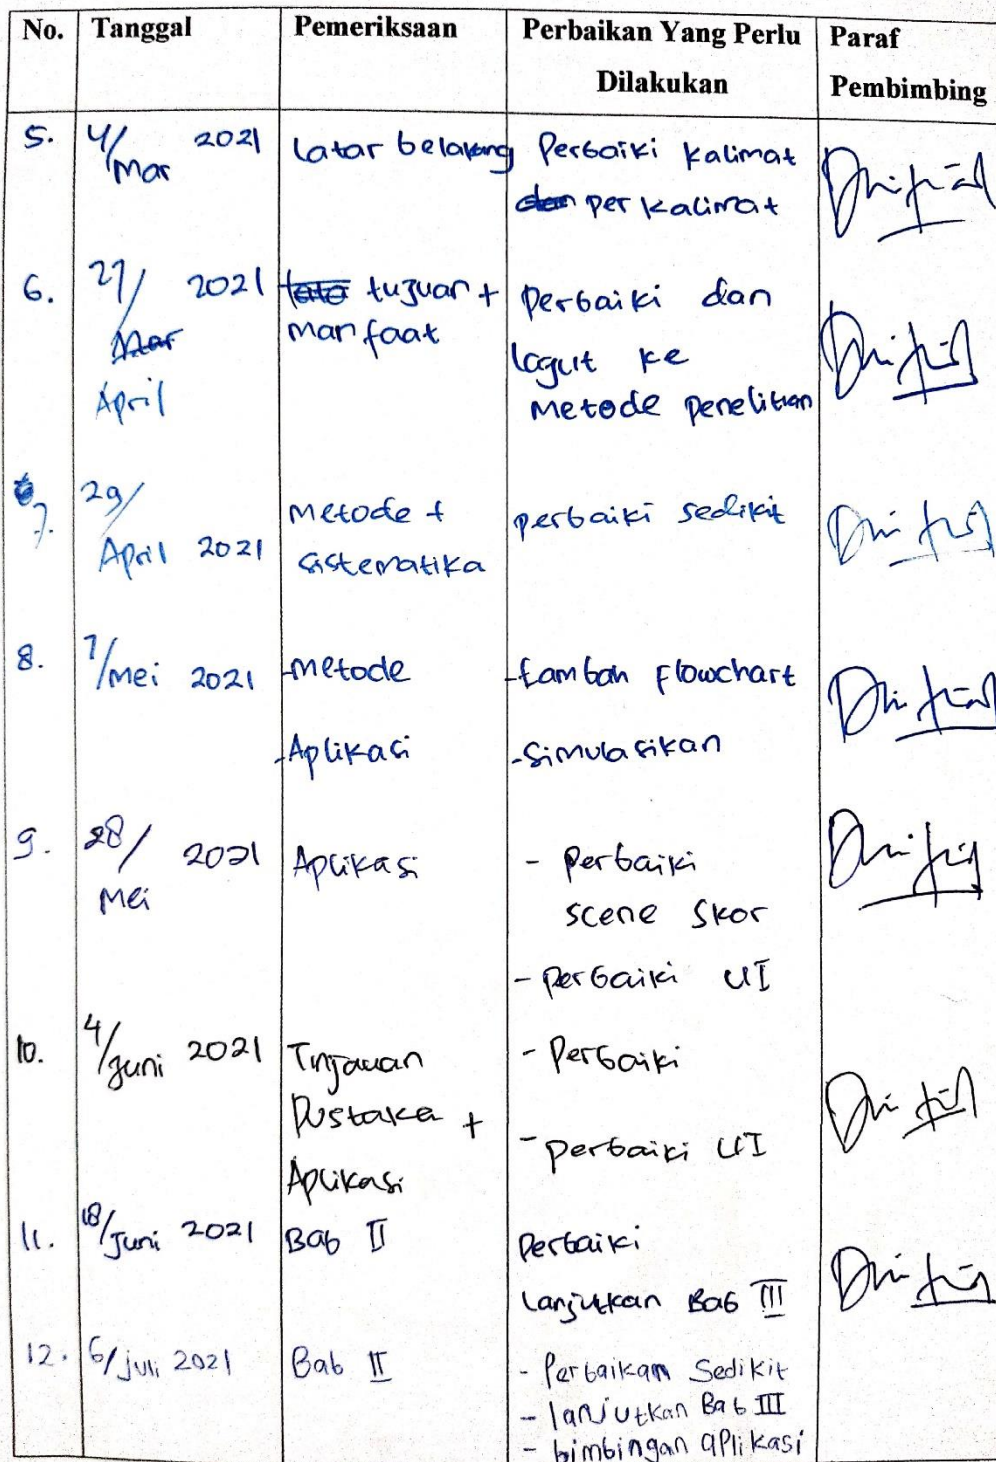 No. Tanggal Pemeriksaan Perbaikan Yang Perlu Dilakukan Paraf Pembimbing
5. 4/Mar 2021 Latar belakang Perbaiki kalimat
per kalimat
6. 27/ April 2021 tujuan + manfaat Perbaiki dan
lagut ke
Metode penelitian
7. 29/ April 2021 Metode + sistematika perbaiki sedikit
8. 7/Mei 2021 -metode -tambah flowchart
-Aplikasi -simulasikan
9. 28/ Mei 2021 Aplikasi - Perbaiki
scene Skor
- perbaiki UI
10. 4/Juni 2021 Tinjauan - Perbaiki
Pustaka +
Aplikasi - perbaiki UI
11. 18/Juni 2021 Bab II Perbaiki
lanjutkan Bab III
12. 6/juli 2021 Bab II - Perbaikan Sedikit
- lanjutkan Bab III
- bimbingan aplikasi